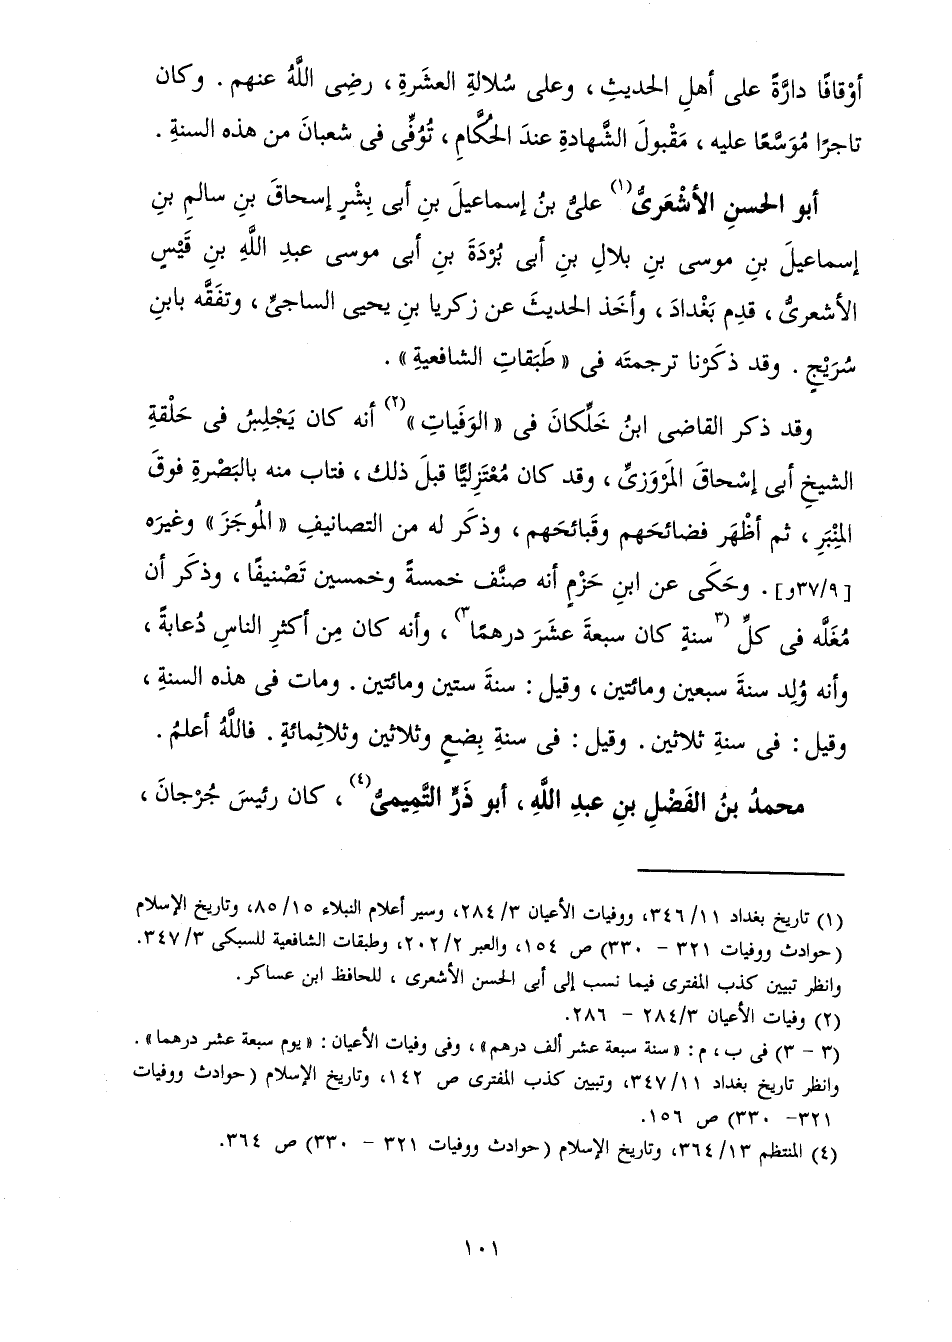 أوْقافًا دارَّةً على أهلِ الحديثِ ، وعلى سُلالةِ العشَرةِ ، رضِى اللَّهُ عنهم . وكان
تاجرًا مُوَسَّعًا عليه ، مَقْبولَ الشَّهادةِ عندَ الحُكَّامِ ، تُوُفِّى فى شعبانَ من هذه السنةِ .
أبو الحسنِ الأشْعَرىُّ(١) علىُّ بنُ إسماعيلَ بنِ أبى بِشْرٍ إسحاقَ بنِ سالمِ بنِ
إسماعيلَ بنِ موسى بنِ بلالِ بنِ أبى بُرْدَةَ بنِ أبى موسى عبدِ اللَّهِ بنِ قَيْسٍ
الأشعرىُّ ، قدِم بَغْدادَ ، وأخَذ الحديثَ عن زكريا بنِ يحيى الساجىِّ ، وتفَقَّه بابنِ
سُرَيْجٍ . وقد ذكَرْنا ترجمتَه فى « طَبَقاتِ الشافعيةِ » .
وقد ذكر القاضى ابنُ خَلِّكانَ فى « الوَفَياتِ »(٢) أنه كان يَجْلِسُ فى حَلْقةِ
الشيخِ أبى إسْحاقَ المَرْوَزىِّ ، وقد كان مُعْتَزِليًّا قبلَ ذلك ، فتاب منه بالبَصْرةِ فوقَ
المِنْبَرِ ، ثم أظْهَر فضائحَهم وقَبائحَهم ، وذكَر له من التصانيفِ « المُوجَزَ » وغيرَه
[٣٧/٩و] . وحَكَى عن ابنِ حَزْمٍ أنه صنَّف خمسةً وخمسين تَصْنيفًا ، وذكَر أن
مُغَلَّه فى كلِّ (٣سنةٍ كان سبعةَ عشَرَ درهمًا٣) ، وأنه كان مِن أكثرِ الناسِ دُعابةً ،
وأنه وُلِد سنةَ سبعين ومائتين ، وقيل : سنةَ ستين ومائتين . ومات فى هذه السنةِ ،
وقيل : فى سنةِ ثلاثين . وقيل : فى سنةِ بِضعٍ وثلاثين وثلاثِمائةٍ . فاللَّهُ أعلمُ .
محمدُ بنُ الفَضْلِ بنِ عبدِ اللَّهِ ، أبو ذَرٍّ التَّمِيمىُّ(٤) ، كان رئيسَ جُرْجانَ ،
(١) تاريخ بغداد ١١/ ٣٤٦، ووفيات الأعيان ٣/ ٢٨٤، وسير أعلام النبلاء ١٥/ ٨٥، وتاريخ الإسلام
(حوادث ووفيات ٣٢١ - ٣٣٠) ص ١٥٤، والعبر ٢٠٢/٢، وطبقات الشافعية للسبكى ٣٤٧/٣.
وانظر تبيين كذب المفترى فيما نسب إلى أبى الحسن الأشعرى ، للحافظ ابن عساكر .
(٢) وفيات الأعيان ٢٨٤/٣ - ٢٨٦.
(٣ - ٣) فى ب ، م : «سنة سبعة عشر ألف درهم» ، وفى وفيات الأعيان : «يوم سبعة عشر درهما» .
وانظر تاريخ بغداد ٣٤٧/١١، وتبيين كذب المفترى ص ١٤٢، وتاريخ الإسلام (حوادث ووفيات
٣٢١- ٣٣٠) ص ١٥٦.
(٤) المنتظم ٣٦٤/١٣، وتاريخ الإسلام (حوادث ووفيات ٣٢١ - ٣٣٠) ص ٣٦٤.
١٠١